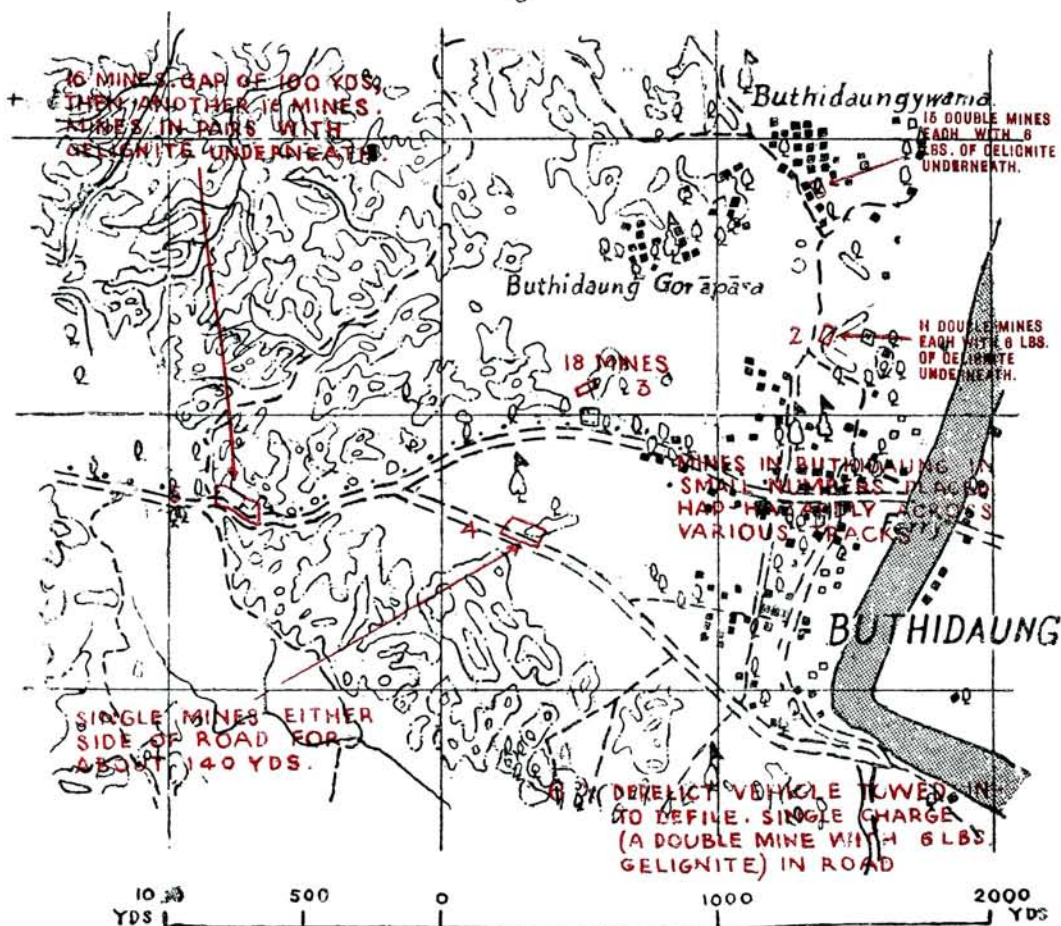 16 MINES. GAP OF 100 YDS,
THEN ANOTHER 16 MINES.
MINES IN PAIRS WITH
GELIGNITE UNDERNEATH.
Buthidaungywama
15 DOUBLE MINES
EACH WITH 6
LBS. OF GELIGNITE
UNDERNEATH.
Buthidaung Gorāpāra
2
11 DOUBLE MINES
EACH WITH 6 LBS.
OF GELIGNITE
UNDERNEATH.
18 MINES
3
MINES IN BUTHIDAUNG IN
SMALL NUMBERS PLACED
HAP-HAZARDLY ACROSS
VARIOUS TRACKS
4
BUTHIDAUNG
SINGLE MINES EITHER
SIDE OF ROAD FOR
ABOUT 140 YDS.
DERELICT VEHICLE TOWED IN-
TO DEFILE. SINGLE CHARGE
(A DOUBLE MINE WITH 6 LBS.
GELIGNITE) IN ROAD
500 0 1000 2000
YDS YDS